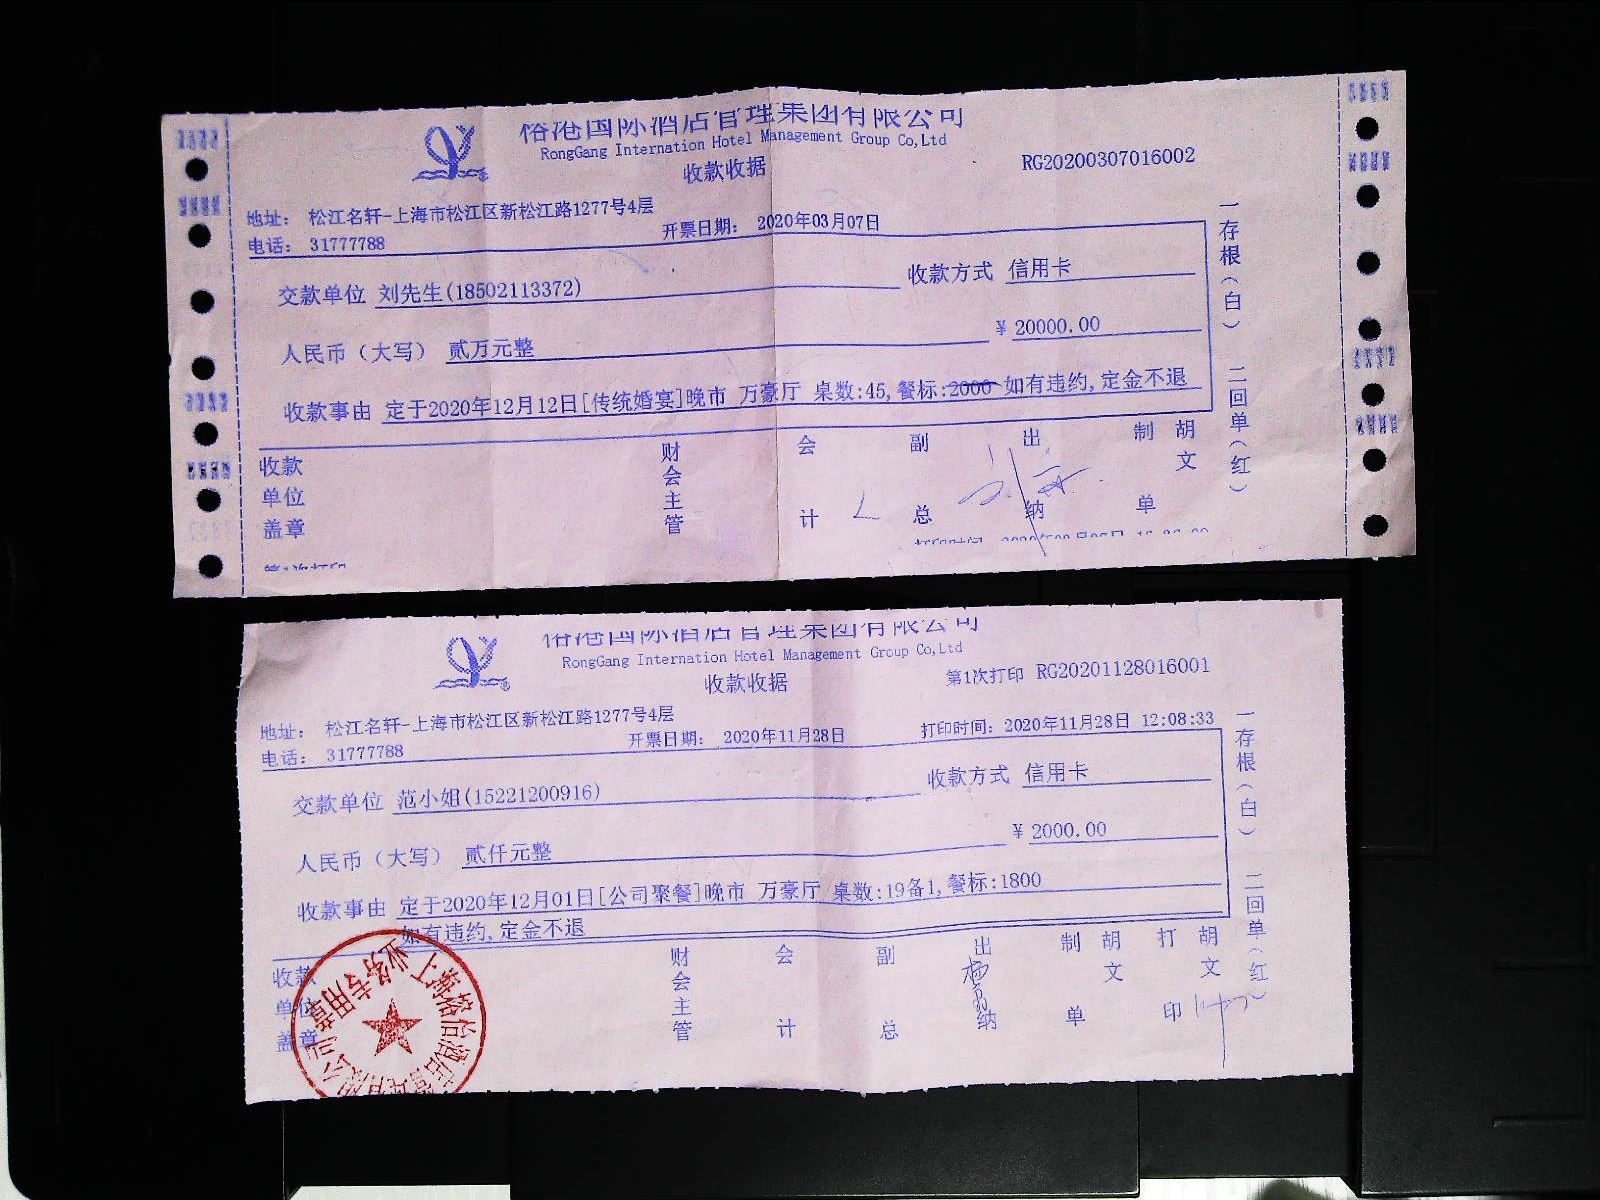 榕港国际酒店管理集团有限公司
RongGang Internation Hotel Management Group Co,Ltd
收款收据
RG20200307016002
地址： 松江名轩-上海市松江区新松江路1277号4层
电话： 31777788
开票日期： 2020年03月07日
交款单位 刘先生(18502113372)
收款方式 信用卡
人民币（大写） 贰万元整
¥ 20000.00
收款事由 定于2020年12月12日[传统婚宴]晚市 万豪厅 桌数:45,餐标:2000 如有违约,定金不退
收款单位盖章
财会主管
会计
副总
出纳
制单
胡文
一存根（白） 二回单（红）
榕港国际酒店管理集团有限公司
RongGang Internation Hotel Management Group Co,Ltd
收款收据
第1次打印 RG20201128016001
地址： 松江名轩-上海市松江区新松江路1277号4层
电话： 31777788
开票日期： 2020年11月28日
打印时间: 2020年11月28日 12:08:33
交款单位 范小姐(15221200916)
收款方式 信用卡
人民币（大写） 贰仟元整
¥ 2000.00
收款事由 定于2020年12月01日[公司聚餐]晚市 万豪厅 桌数:19备1,餐标:1800
如有违约,定金不退
收款单位盖章
财会主管
会计
副总
出纳
制单
胡文
打印
胡文
一存根（白） 二回单（红）
业务专用章